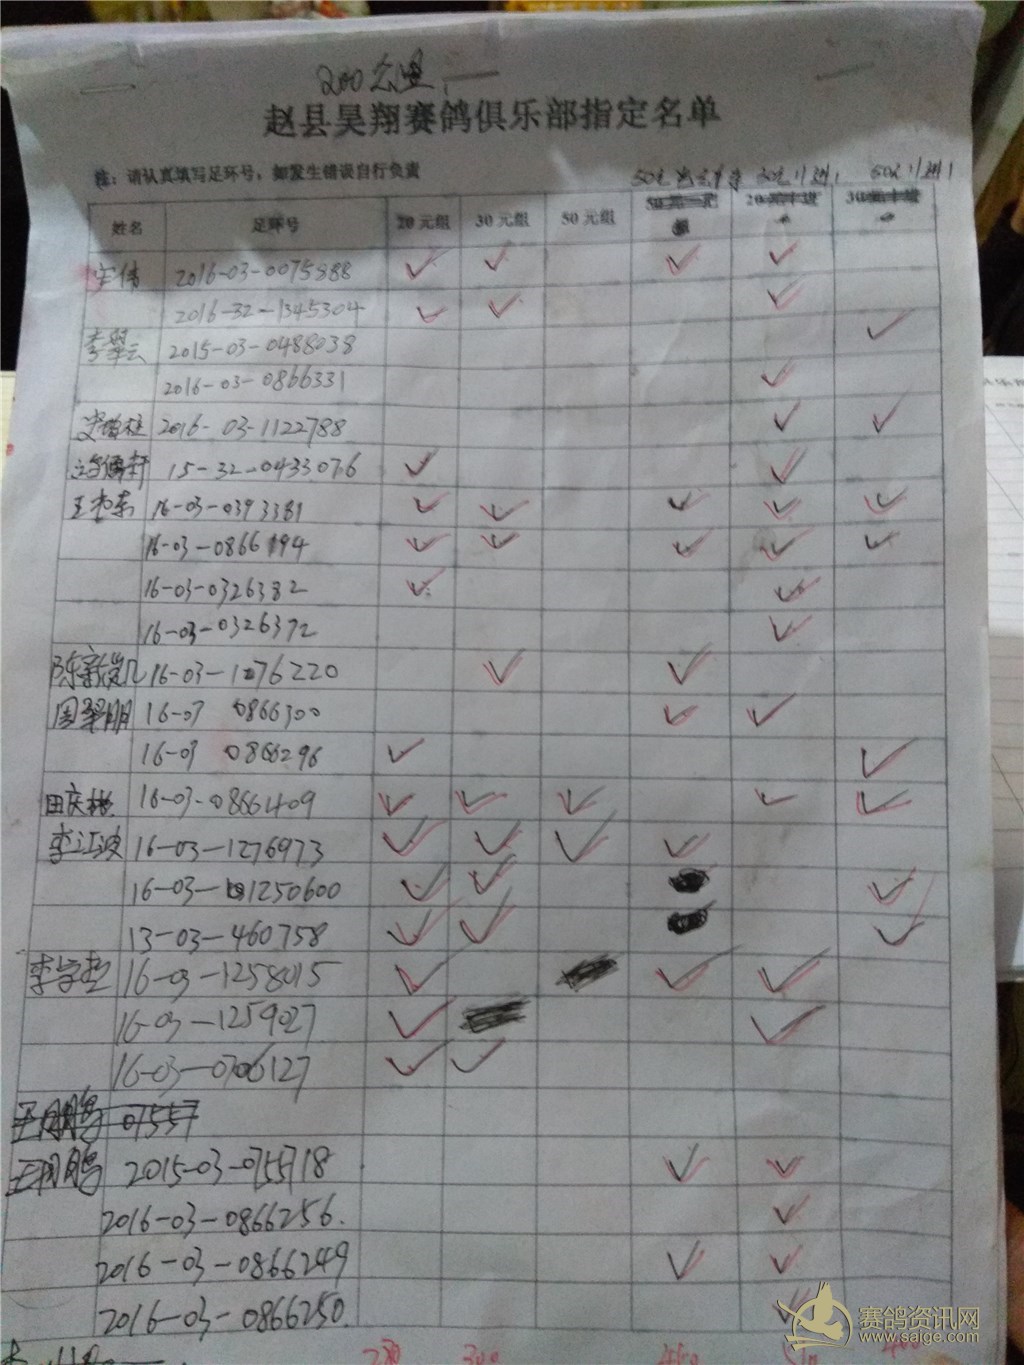 200公里
赵县昊翔赛鸽俱乐部指定名单
注：请认真填写足环号，如发生错误自行负责
姓名 足环号 20元组 30元组 50元组
2016-03-0075888 ✓ ✓ ✓ ✓
2016-32-1345304 ✓ ✓ ✓
李翠云 2015-03-0488038 ✓
2016-03-0866331 ✓
2016-03-1122788 ✓ ✓
15-32-0433076 ✓ ✓
16-03-0393381 ✓ ✓ ✓ ✓ ✓
16-03-0866194 ✓ ✓ ✓ ✓ ✓
16-03-0326382 ✓ ✓
16-03-0326372 ✓
16-03-1076220 ✓ ✓
周翠朋 16-03 0866300 ✓ ✓
16-03 0866296 ✓ ✓
田庆彬 16-03-0866409 ✓ ✓ ✓ ✓ ✓
李江波 16-03-1276973 ✓ ✓ ✓ ✓
16-03-1250600 ✓ ✓ ✓
13-03-460758 ✓ ✓ ✓
16-03-1258015 ✓ ✓ ✓
16-03-1259027 ✓ ✓
16-03-0706127 ✓ ✓
王翔鹏 07557
王翔鹏 2015-03-0755718 ✓ ✓
2016-03-0866256. ✓
2016-03-0866249 ✓ ✓
2016-03-0866250. ✓
赛鸽资讯网
www.saige.com